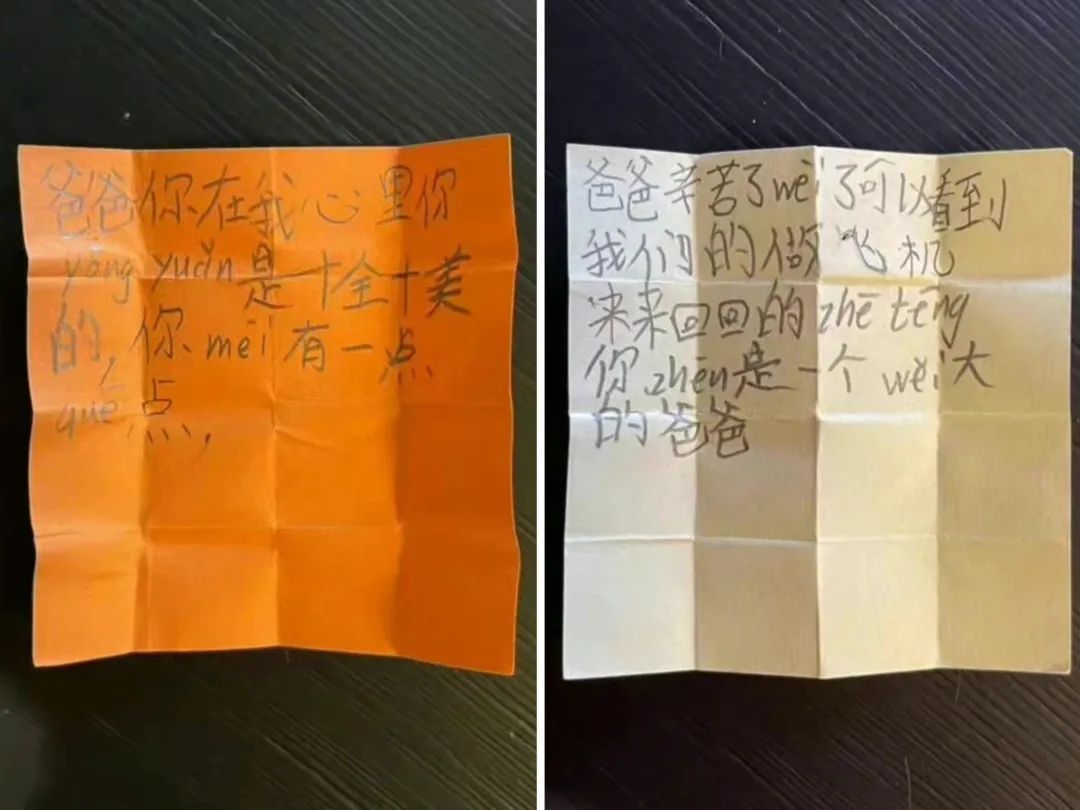 爸爸你在我心里你
yǒng yuǎn是一十全十美
的,你méi有一点
quē点,
爸爸辛苦了wèi了可以看到
我们的做飞机
来来回回的zhē téng
你zhēn是一个wěi大
的爸爸